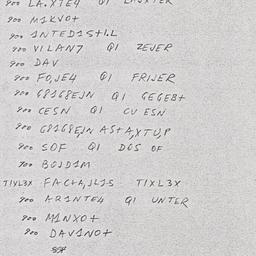 900 LA.XTE4 QI LAJXTER
900 M1KVO+
900 1NTED1S+1.L
900 VILAN7 QI ZEJER
900 DAV
900 FO,JE4 QI FRIJER
900 G8168EJN QI GEGEB+
900 CESN QI CU ESN
900 G8168E,N AS+A,XTU,P
900 SOF QI DOS OF
900 BOJD1M
T1XL3X FAC+A,JL1S T1XL3X
900 AR1NTE4 QI UNTER
900 M1NXO+
900 DAV1NO+